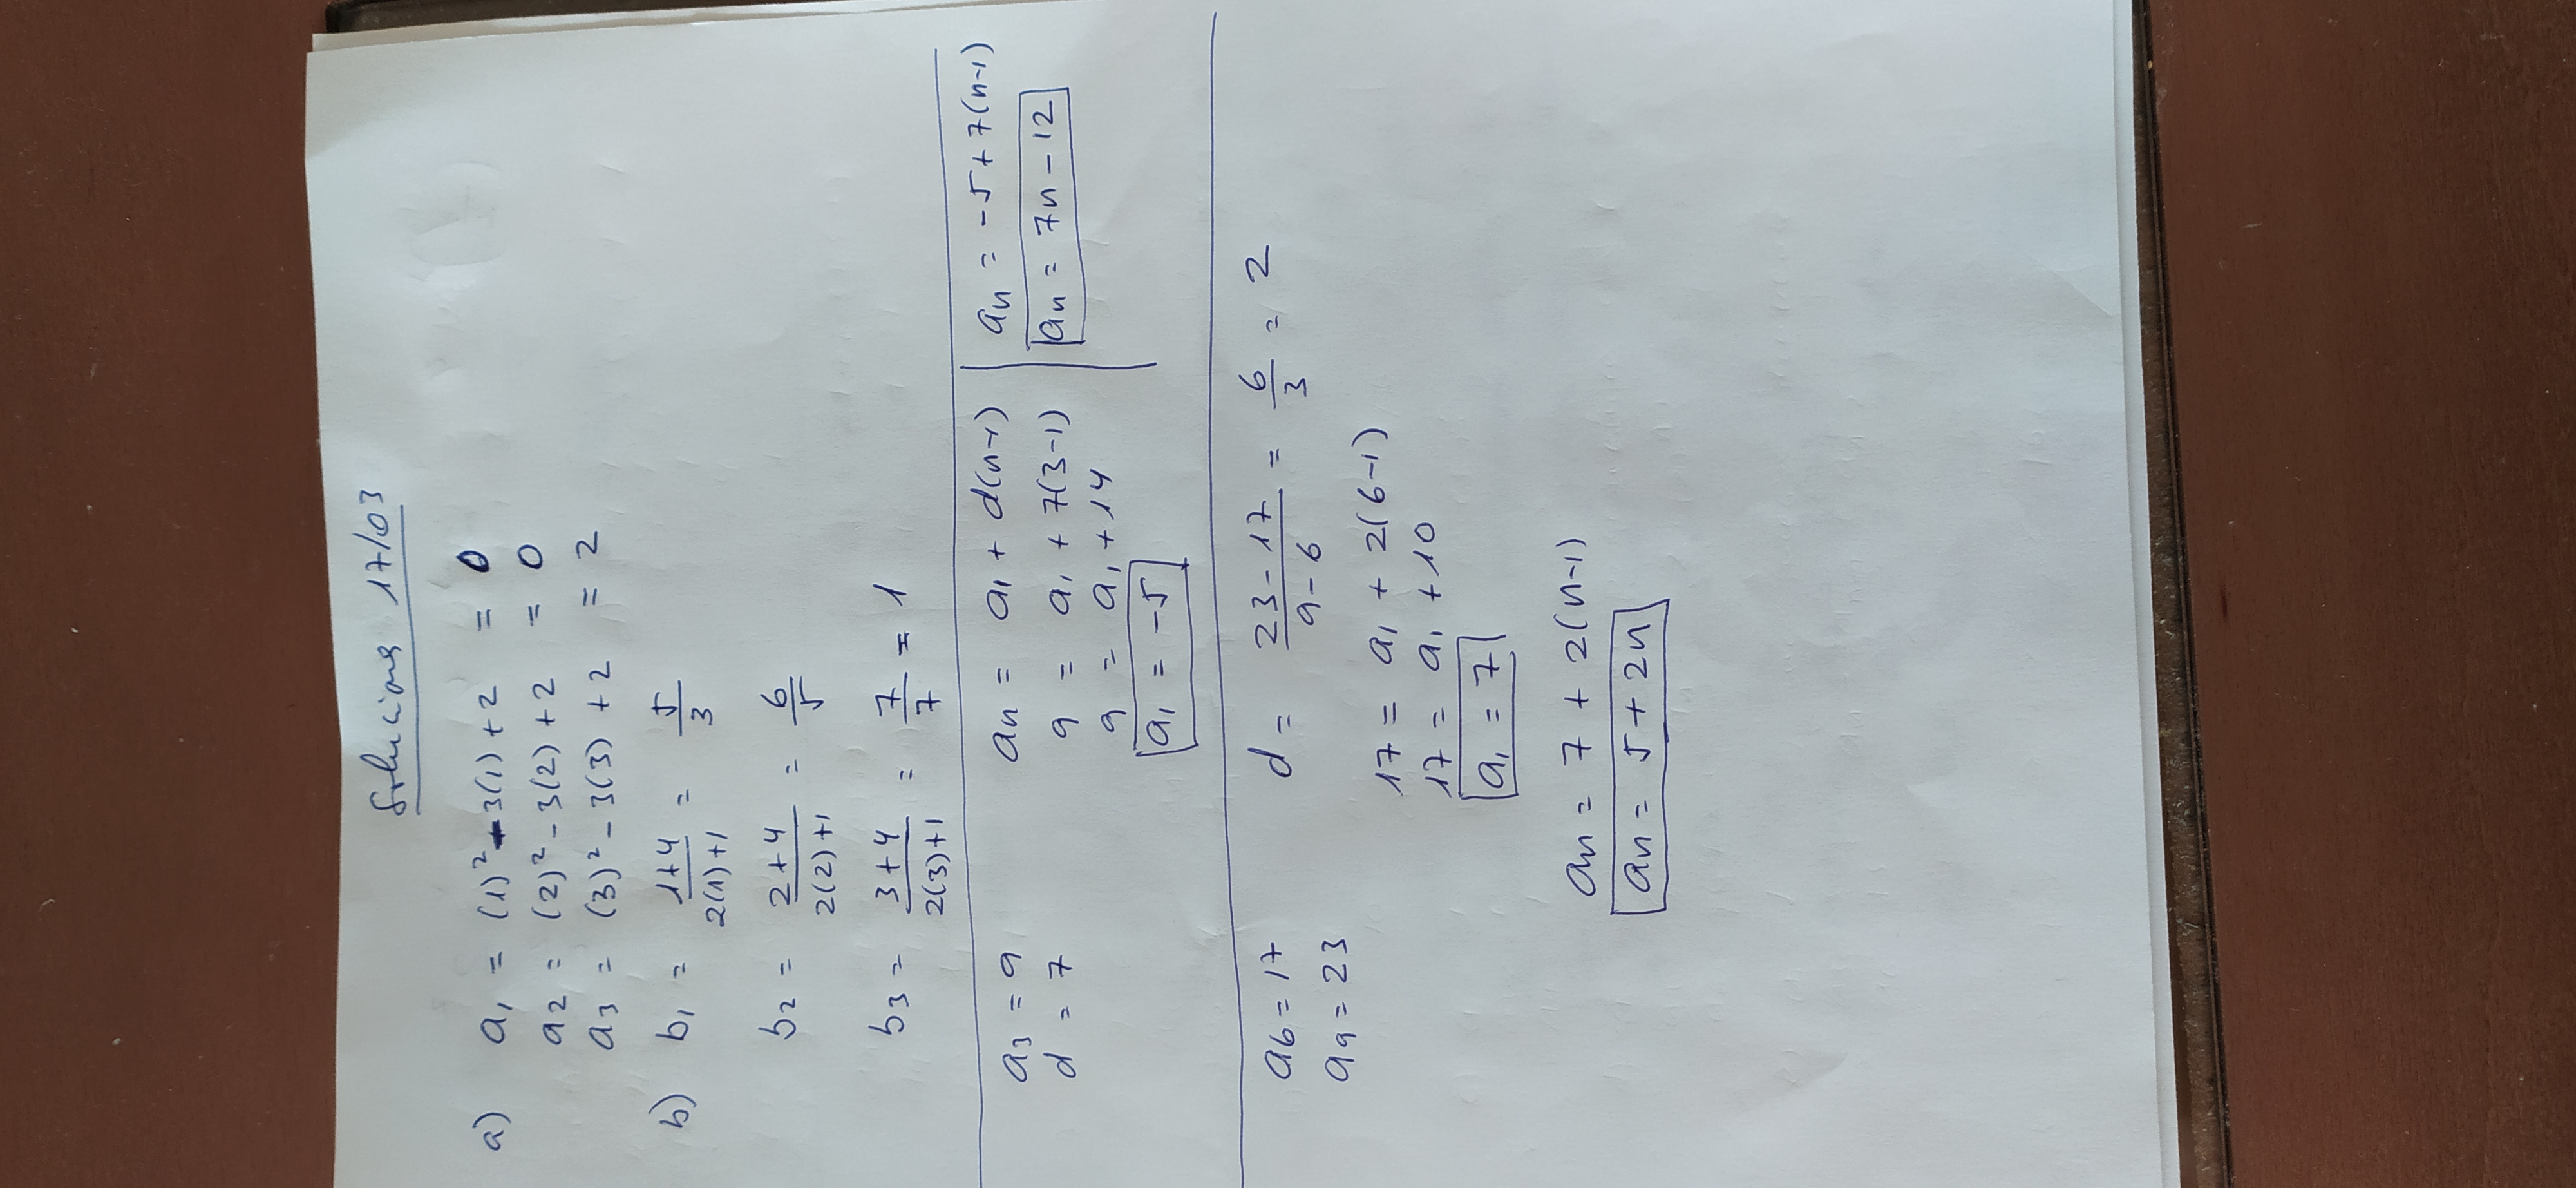 Soluciones 17/03
a) a₁ = (1)² - 3(1) + 2 = 0
a₂ = (2)² - 3(2) + 2 = 0
a₃ = (3)² - 3(3) + 2 = 2
b) b₁ = (1+4)/(2(1)+1) = 5/3
b₂ = (2+4)/(2(2)+1) = 6/5
b₃ = (3+4)/(2(3)+1) = 7/7 = 1
a₃ = 9
d = 7
an = a₁ + d(n-1)
9 = a₁ + 7(3-1)
9 = a₁ + 14
a₁ = -5
an = -5 + 7(n-1)
an = 7n - 12
a₆ = 17
a₉ = 23
d = (23-17)/(9-6) = 6/3 = 2
17 = a₁ + 2(6-1)
17 = a₁ + 10
a₁ = 7
an = 7 + 2(n-1)
an = 5 + 2n